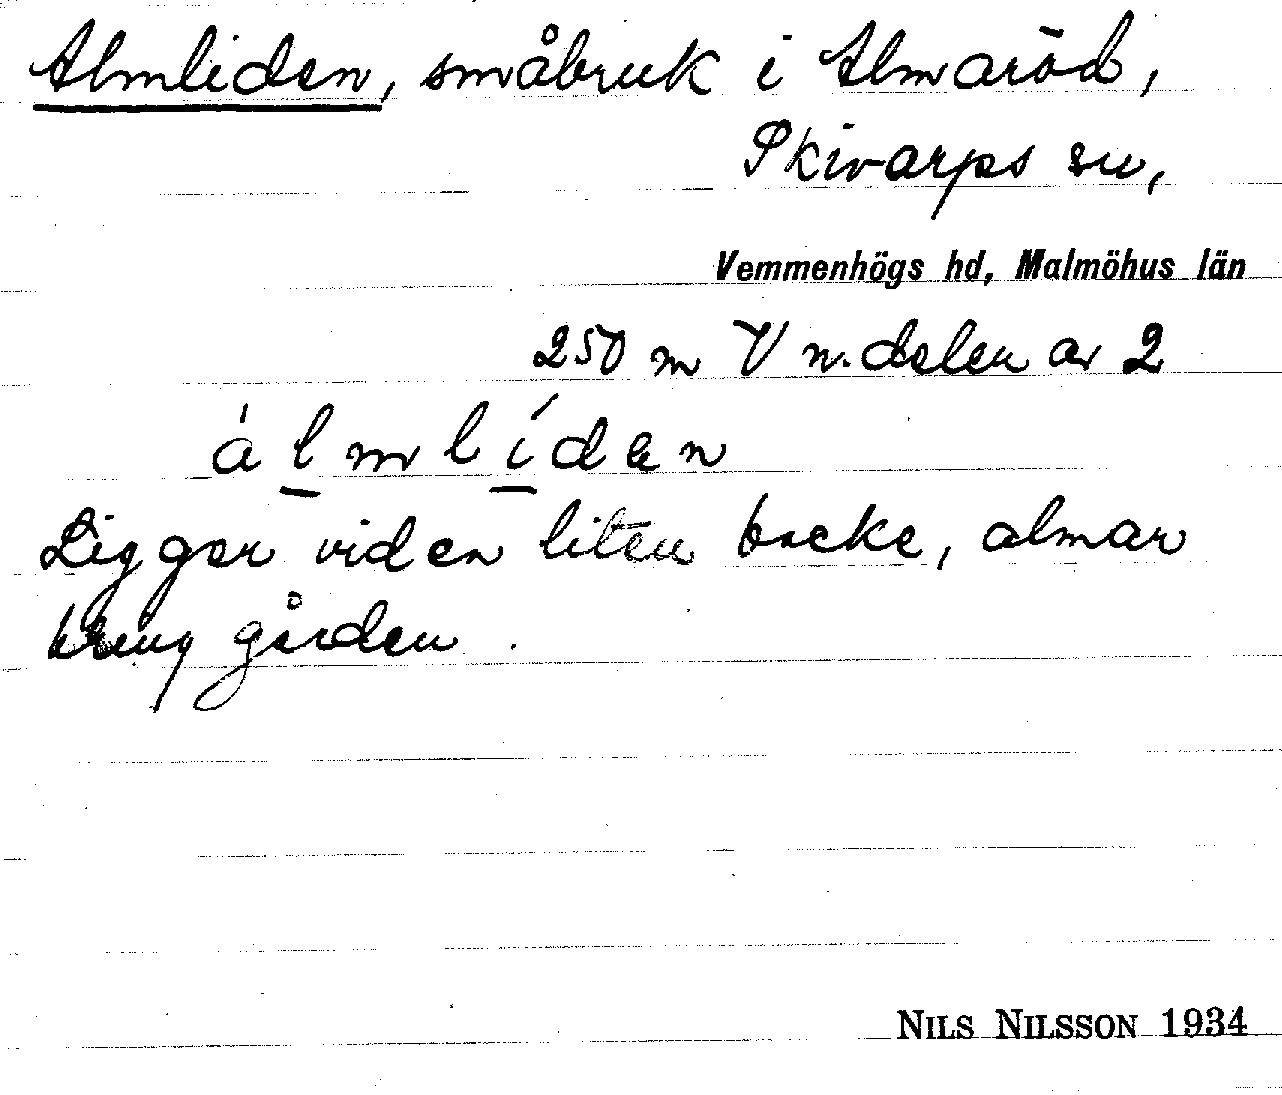 Almliden, småbruk i Almaröd,
Skivarps sn,
Vemmenhögs hd, Malmöhus län
250 m V n. delen av 2
álmlíden
Ligger vid en liten backe, almar
kring gården.
NILS NILSSON 1934